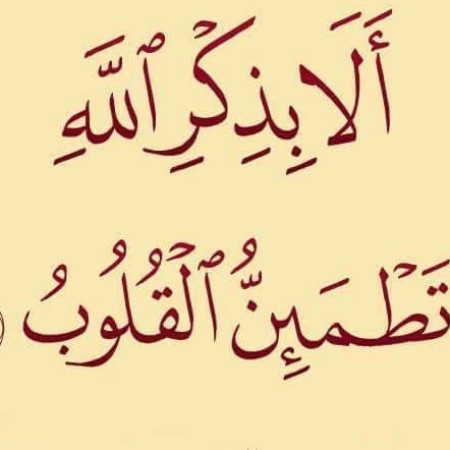 أَلَا بِذِكْرِ ٱللَّهِ
تَطْمَئِنُّ ٱلْقُلُوبُ